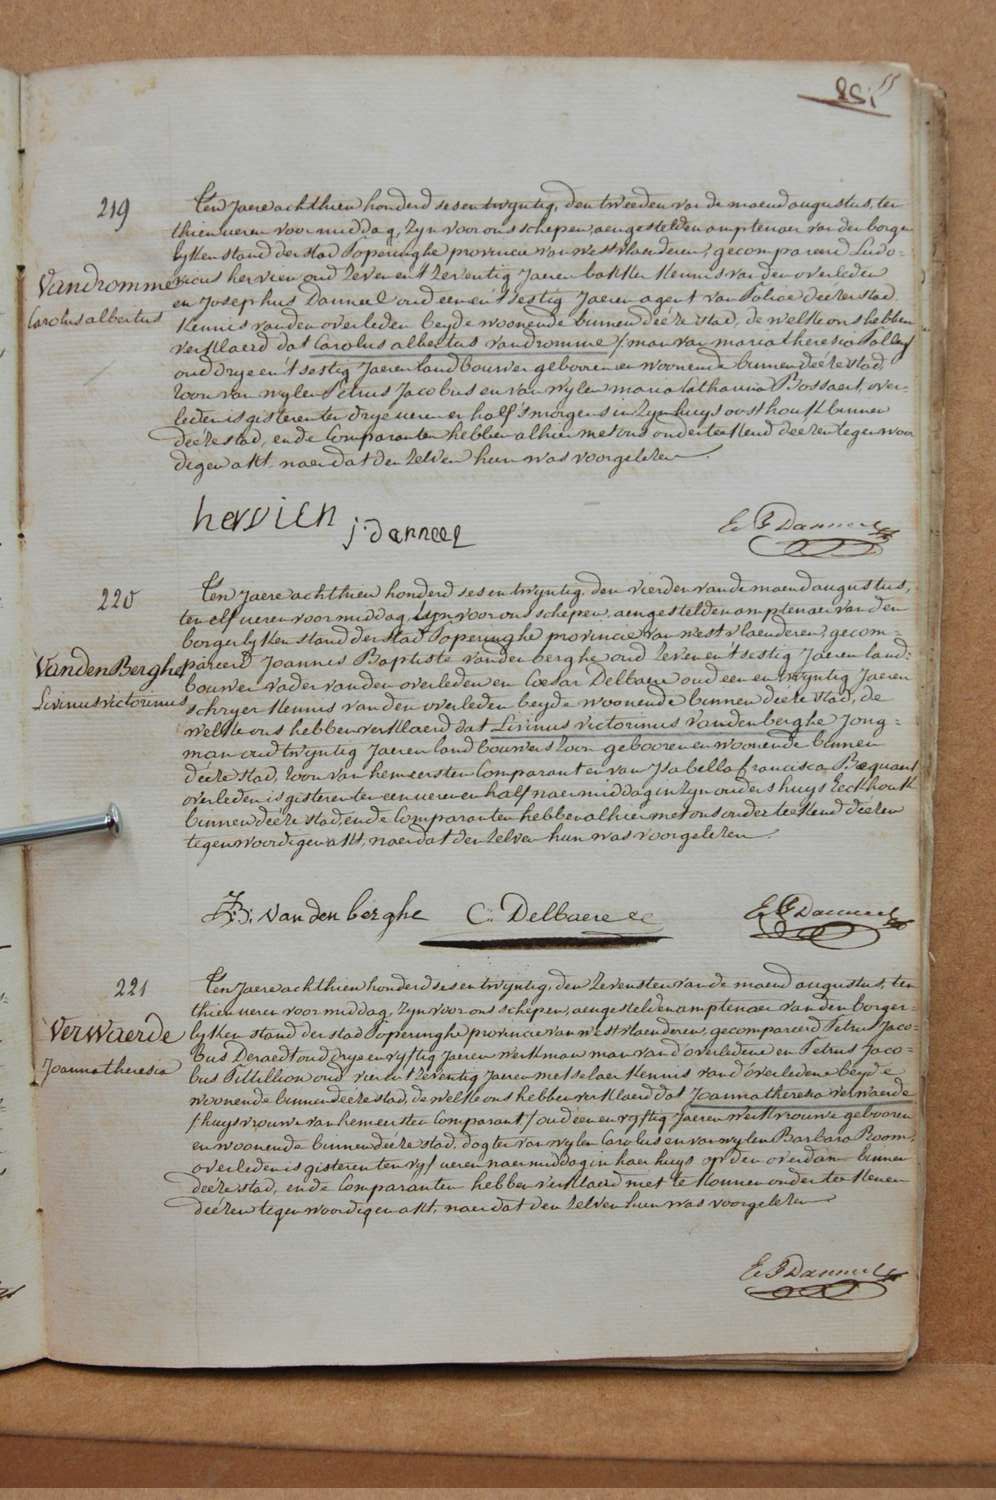 219
Vandromme
Carolus albertus
Ten Jaere achthien honderd sesentwyntig, den tweeden van de maend augustus, ten
thien ueren voor middag, Zyn voor ons schepen, aengestelden amptenaer van den borger
lyken stand der stad Poperinghe provincie van westvlaenderen, gecompareerd Ludo-
vicus hervien oud Zeven en 't Zeventig Jaeren bakker kennis van den overleden
en Josephus Danneel oud een en 't sestig Jaeren agent van Police deézer stad
kennis van den overleden beyde woonende binnen deéze stad, de welke ons hebben
verklaerd dat Carolus albertus vandromme / man van maria theresia Pollef
oud drye en 't sestig Jaeren landbouwer gebooren en woonende binnen deéze stad
zoon van wylen Petrus Jacobus en van wylen maria Catharina Bossaert, over-
leden is gisteren ten drye ueren en half 's morgens in Zyn huys oosthouk binnen
deéze stad, en de Comparanten hebben alhier met ons onderteekend deézen tegenwoor
digen akt, naer dat den Zelven hun was voorgelezen.
hervien j: danneel E F Danneel
220
VandenBerghe
Livinus victorinus
Ten Jaere achthien honderd sesentwyntig, den vierden van de maend augustus,
ten elf ueren voor middag, Zyn voor ons schepen, aengestelden amptenaer van den
borgerlyken stand der stad Poperinghe provincie van westvlaenderen, gecom-
pareerd Joannes Baptiste vandenberghe oud Zeven en 't sestig Jaeren land-
bouwer vader van den overleden en Cæsar Delbaere oud een en twyntig Jaeren
schryver kennis van den overleden beyde woonende binnen deéze stad, de
welke ons hebben verklaerd dat Livinus victorinus vandenberghe Jong-
man oud twyntig Jaeren landbouwers zoon gebooren en woonende binnen
deéze stad, zoon van hem eersten Comparant en van Isabella francisca Bæquaert
overleden is gisteren ten een ueren en half naermiddag in Zyn ouders huys Eeckhouk
binnen deéze stad, en de Comparanten hebben alhier met ons onderteekend deézen
tegenwoordigen akt, naer dat den Zelven hun was voorgelezen.
J: B: vandenberghe C: Delbaere E F Danneel
221
Verwaerde
Joanna theresia
Ten Jaere achthien honderd sesentwyntig, den Zevensten van de maend augustus, ten
thien ueren voor middag, Zyn voor ons schepen, aengestelden amptenaer van den borger-
lyken stand der stad Poperinghe provincie van westvlaenderen, gecompareerd Petrus Jaco-
bus Deraedt oud drye en vyftig Jaeren werkman man van d'overledene en Petrus Jaco-
bus Pittillion oud vier en 't Zeventig Jaeren metselaer kennis van d'overledene beyde
woonende binnen deéze stad, de welke ons hebben verklaerd dat Joanna theresia verwaerde
/ huysvrouwe van hem eersten Comparant / oud een en vyftig Jaeren werkvrouwe gebooren
en woonende binnen deéze stad, dogter van wylen Carolus en van wylen Barbara Room,
overleden is gisteren ten vyf ueren naermiddag in haer huys op den overdam binnen
deéze stad, en de Comparanten hebben verklaerd niet te konnen onderteekenen
deézen tegenwoordigen akt, naer dat den Zelven hun was voorgelezen
E F Danneel